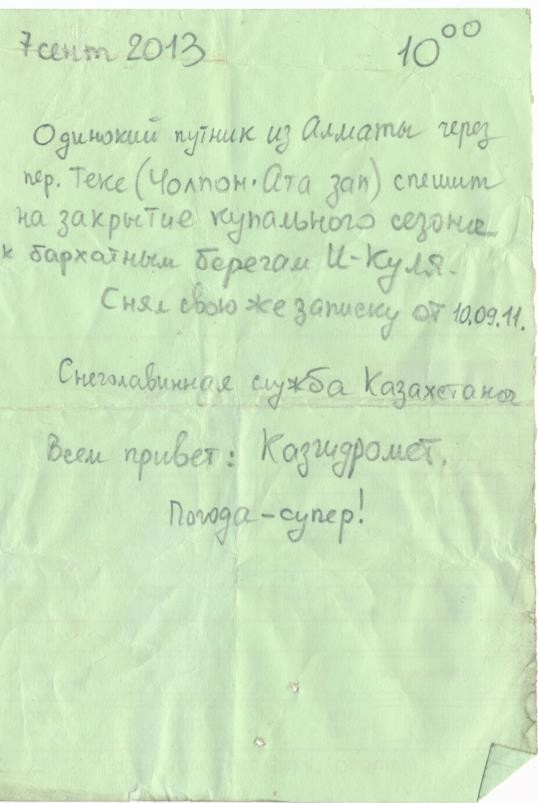 7 сент 2013 10⁰⁰
Одинокий путник из Алматы через
пер. Текс (Чолпон-Ата зап) спешит
на закрытие купального сезона
к бархатным берегам И-Куля.
Снял свою же записку от 10.09.11.
Снеголавинная служба Казахстана
Всем привет: Казгидромет.
Погода - супер!